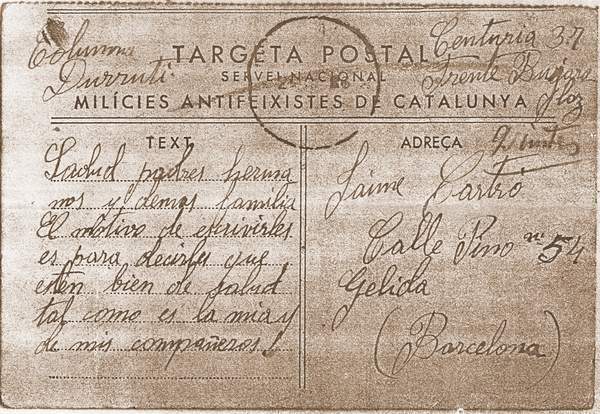 Columna
Durruti
TARGETA POSTAL
SERVEI NACIONAL
MILÍCIES ANTIFEIXISTES DE CATALUNYA
Centuria 37
Frente
TEXT
Salud padres herma
nos y demas familia
El motivo de escrivirles
es para decirles que
esten bien de salud
tal como es la mia y
de mis compañeros!
ADREÇA
Jaime Castro
Calle Pino nº 54
Gelida
(Barcelona)